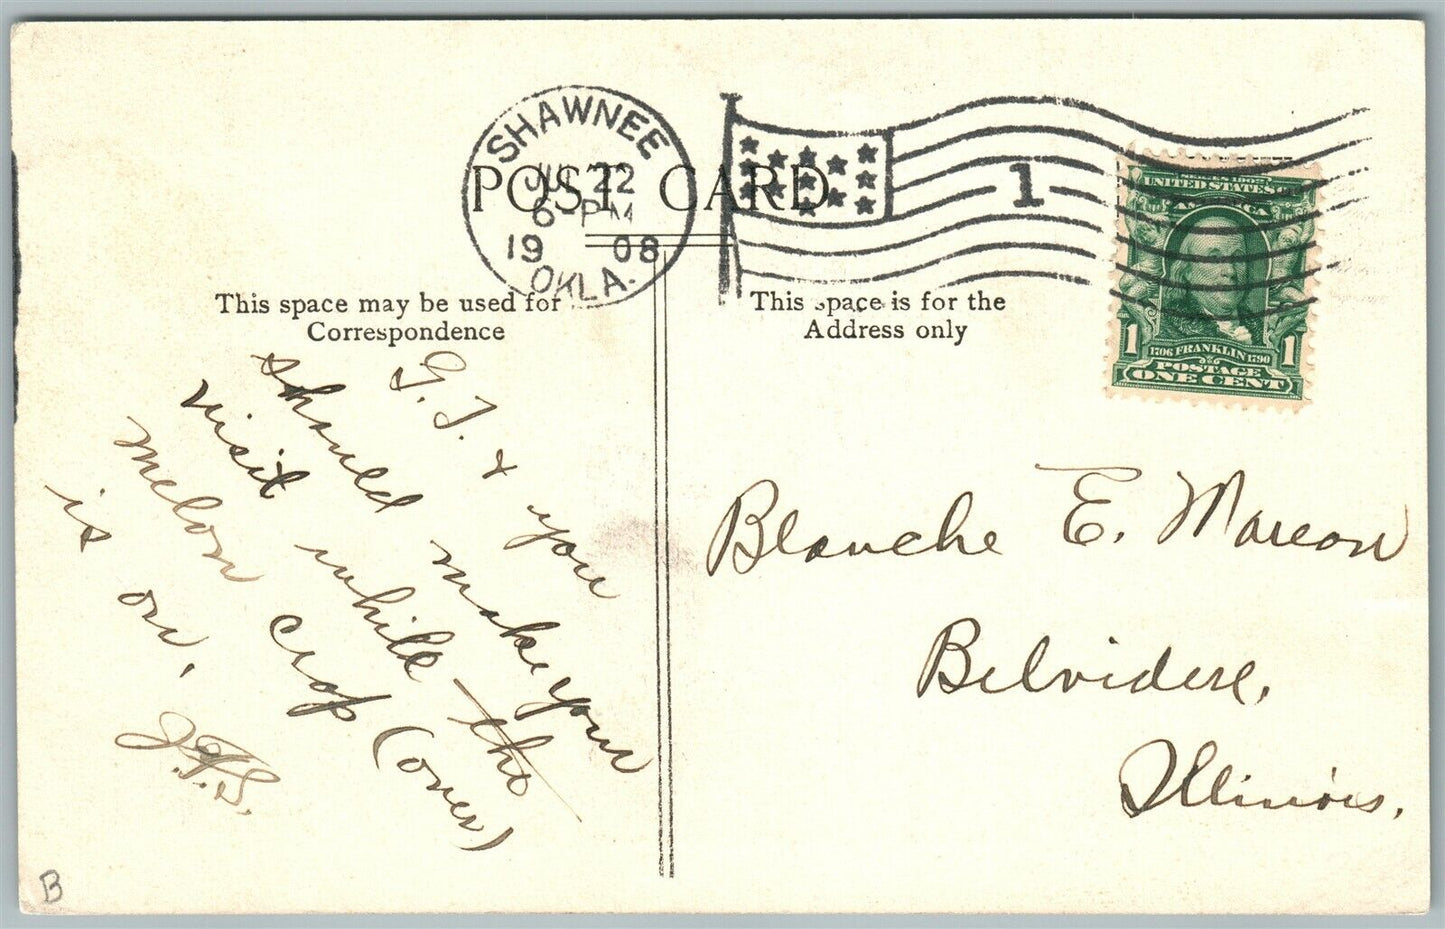 SHAWNEE
JUL 22
6-PM
1908
OKLA.
1
POST CARD
This space may be used for
Correspondence
This space is for the
Address only
UNITED STATES OF
AMERICA
1706 FRANKLIN 1790
1 1
POSTAGE
ONE CENT
G. T. & you
should make your
visit while the
melon crop (over)
is on.
J.F.S.
Blanche E. Marean
Belvidere,
Illinois.
B